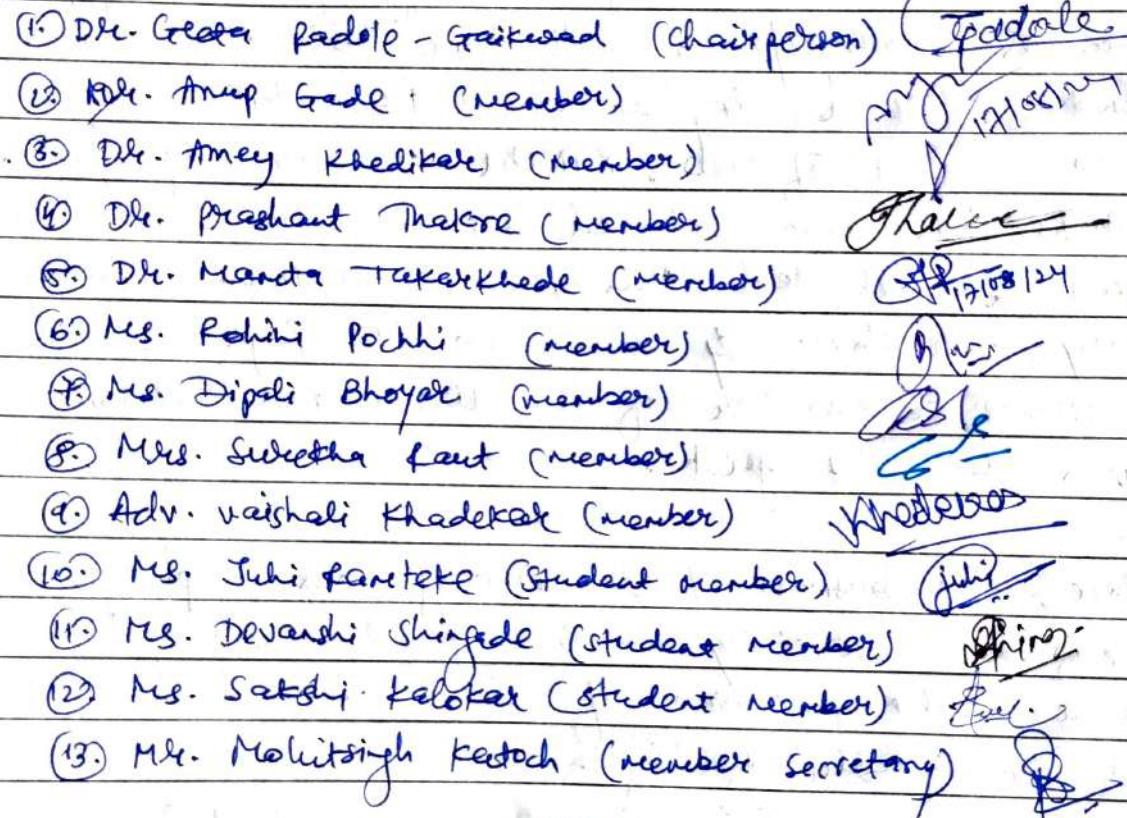 1. Dr. Geeta Padole - Gaikwad (Chairperson) Gpadole
2. Dr. Anup Gade (member) 17/08/24
3. Dr. Amey Khedikar (member)
4. Dr. Prashant Thakre (member)
5. Dr. Mamta Takarkhede (member) 17/08/24
6. Ms. Rohini Pochhi (member)
7. Ms. Dipali Bhoyar (member)
8. Mrs. Surekha Raut (member)
9. Adv. Vaishali Khadekar (member)
10. Ms. Juhi Rameteke (student member) juhi
11. Ms. Devanshi Shingade (student member)
12. Ms. Sakshi Kalokar (student member)
13. Mr. Mohitsingh Katoch (member secretary)